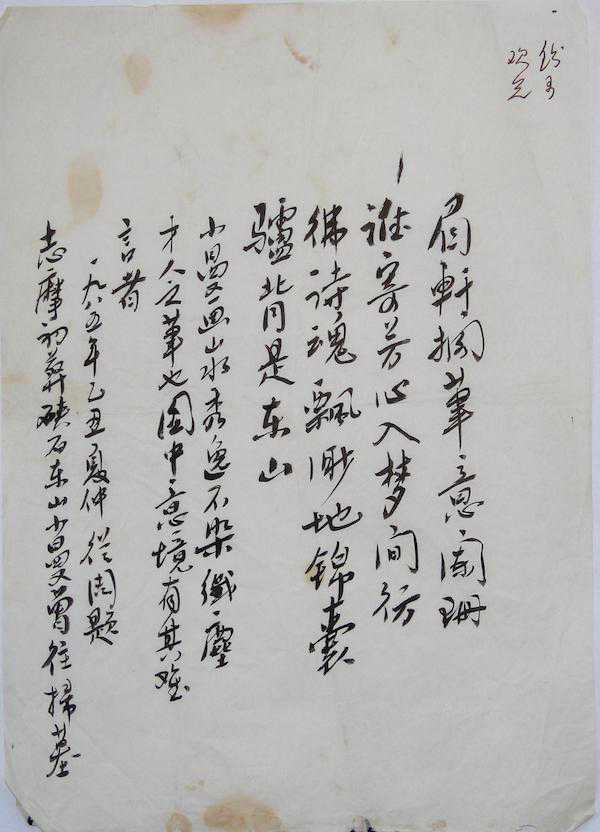 眉軒搁筆意阑珊
谁寄芳心入梦间彷
彿诗魂飘渺地锦囊
驢背是东山
小曼画山水秀逸不染纖塵
才人之筆也图中意境有其难
言者
一九八五年乙丑夏仲從周题
志摩初葬硖石东山小曼曾往掃墓